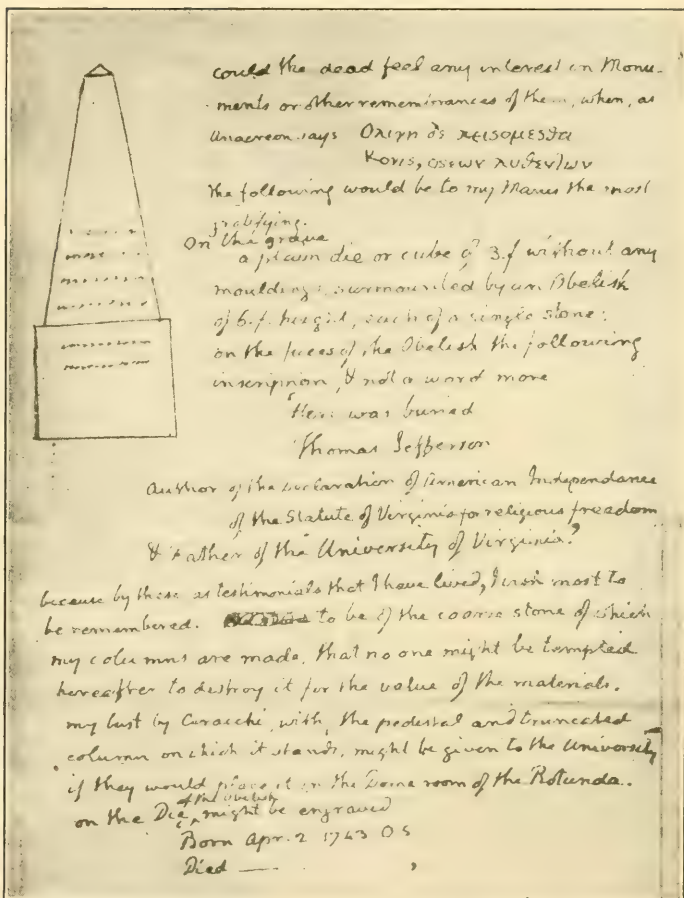 could the dead feel any interest in Monu-
-ments or other remembrances of them, when, as
Anacreon says Ολιγη δε κεισομεσθα
Κονις, οσεων λυθεντων
the following would be to my Manes the most
gratifying.
On the grave
a plain die or cube of 3.f without any
mouldings, surmounted by an Obelisk
of 6.f. height, each of a single stone:
on the faces of the Obelisk the following
inscription, & not a word more
'Here was buried
Thomas Jefferson
Author of the Declaration of American Independance
of the Statute of Virginia for religious freedom
& Father of the University of Virginia.'
because by these as testimonials that I have lived, I wish most to
be remembered. to be of the coarse stone of which
my columns are made, that no one might be tempted
hereafter to destroy it for the value of the materials.
my bust by Ciracchi, with the pedestal and truncated
column on which it stands, might be given to the University
if they would place it in the Dome room of the Rotunda.
on the Die of the obelisk might be engraved
Born Apr. 2 1743 O S
Died —